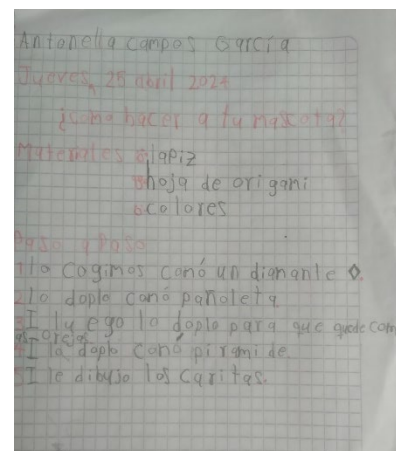 Antonella campos Garcia
Jueves, 25 abril 2024
¿como hacer a tu mascota?
Materiales lapiz
hoja de origami
colores
Paso a Paso
1 lo cogimos comó un diamante
2 lo doplo comó pañoleta
3 I luego lo doplo para que quede com
as orejas
4 I la doplo comó piramide.
5 I le dibujo los caritas.